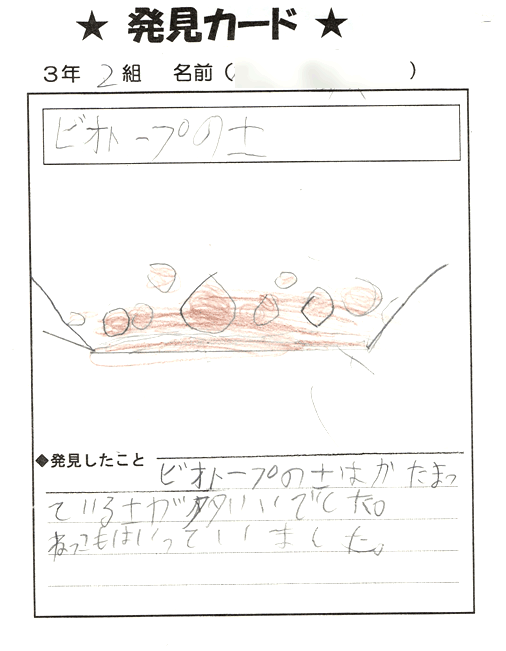 ★ 発見カード ★
3年 2 組 名前 ( )
ビオトープの土
◆発見したこと
ビオトープの土はかたまっ
ている土が多いいでした。
ねっこもはいっていました。